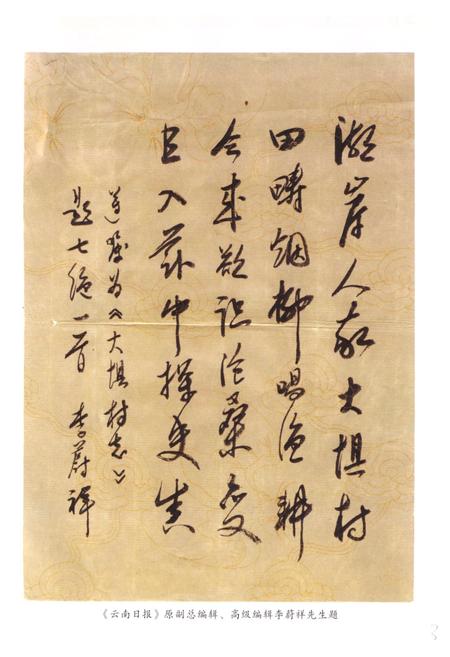 湖岸人家大惧村
田畴烟柳唱渔耕
今来欲识沧桑变
入中探史真
为《大惧村志》
题七绝一首 李蔚祥
《云南日报》原副总编辑、高级编辑李蔚祥先生题